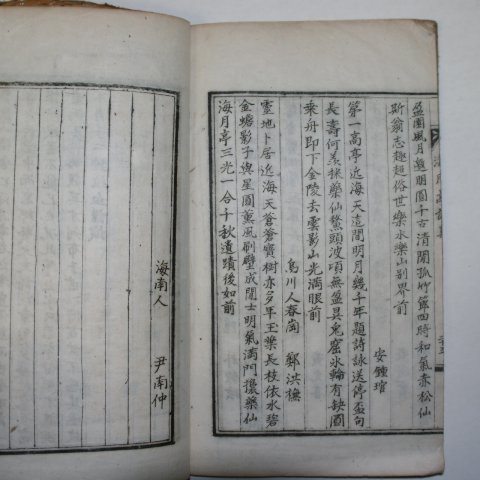 盈團風月邀明圓千古清閒孤竹篩四時和氣赤松仙
斯翁志趣超俗世樂水樂山別界前
安鍾瑢
第一高亭近海天這間明月幾千年題詩詠送停盃句
長壽何羨採藥仙鰲頭波頃無盈昃兎窟氷輪有缺圓
乘舟即下金陵去雲影山光滿眼前
烏川人春崗 鄭洪懋
靈地卜居近海天蒼蒼寶樹亦多年玉葉長枝依水碧
金蟾影子與星圓薰風刷壁成閒士明氣滿門擾藥仙
海月亭三光一合千秋遺蹟後如前
海南人 尹南仲